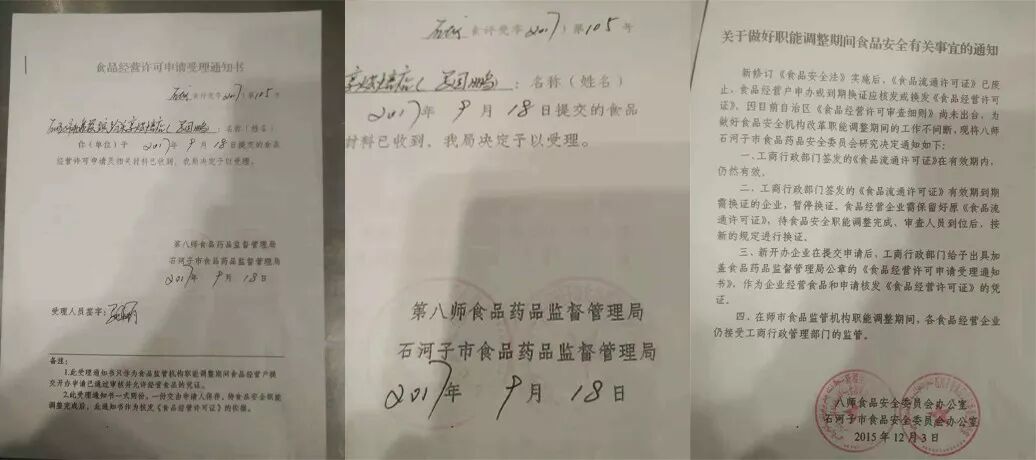 食品经营许可申请受理通知书
食许受字2017第105号
：名称（姓名）
你（单位）于 2017年 9月 18日提交的食品
经营许可申请及相关材料已收到，我局决定予以受理。
第八师食品药品监督管理局
石河子市食品药品监督管理局
2017年 9月 18日
受理人员签字：
备注：
1.此受理通知书只作为食品监管机构职能调整期间食品经营户提
交开办申请已通过审核并允许经营食品的凭证。
2.此受理通知书一式两份，一份交由申请人保存，待食品安全职能
调整完成后，此通知书作为核发《食品经营许可证》的依据。
食许受字2017第105号
：名称（姓名）
2017年 9月 18日提交的食品
材料已收到，我局决定予以受理。
第八师食品药品监督管理局
石河子市食品药品监督管理局
2017年 9月 18日
关于做好职能调整期间食品安全有关事宜的通知
新修订《食品安全法》实施后，《食品流通许可证》已废
止，食品经营户申办或到期换证应核发或换发《食品经营许可
证》，因目前自治区《食品经营许可审查细则》尚未出台，为
做好食品安全机构改革职能调整期间的工作不间断，现将八师
石河子市食品药品安全委员会研究决定通知如下：
一、工商行政部门签发的《食品流通许可证》在有效期内，
仍然有效。
二、工商行政部门签发的《食品流通许可证》有效期到期
需换证的企业，暂停换证、食品经营企业需保留好原《食品流
通许可证》，待食品安全职能调整完成、审查人员到位后，按
新的规定进行换证。
三、新开办企业在提交申请后，工商行政部门给予出具加
盖食品药品监督管理局公章的《食品经营许可申请受理通知
书》，作为企业经营食品和申请核发《食品经营许可证》的凭
证。
四、在师市食品监管机构职能调整期间，各食品经营企业
仍接受工商行政管理部门的监管。
八师食品安全委员会办公室
石河子市食品安全委员会办公室
2015年12月3日